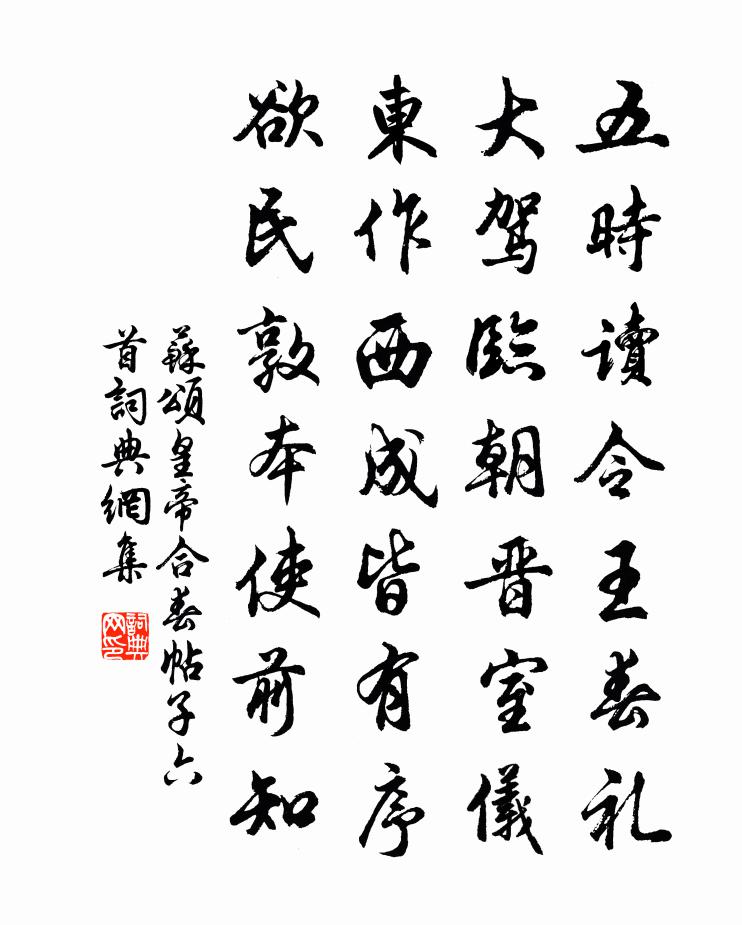 五時讀令王春礼
大駕臨朝晋室儀
東作西成皆有序
欲民敦本使前知
蘇頌皇帝合春帖子六
首詞典網集
詞典网印